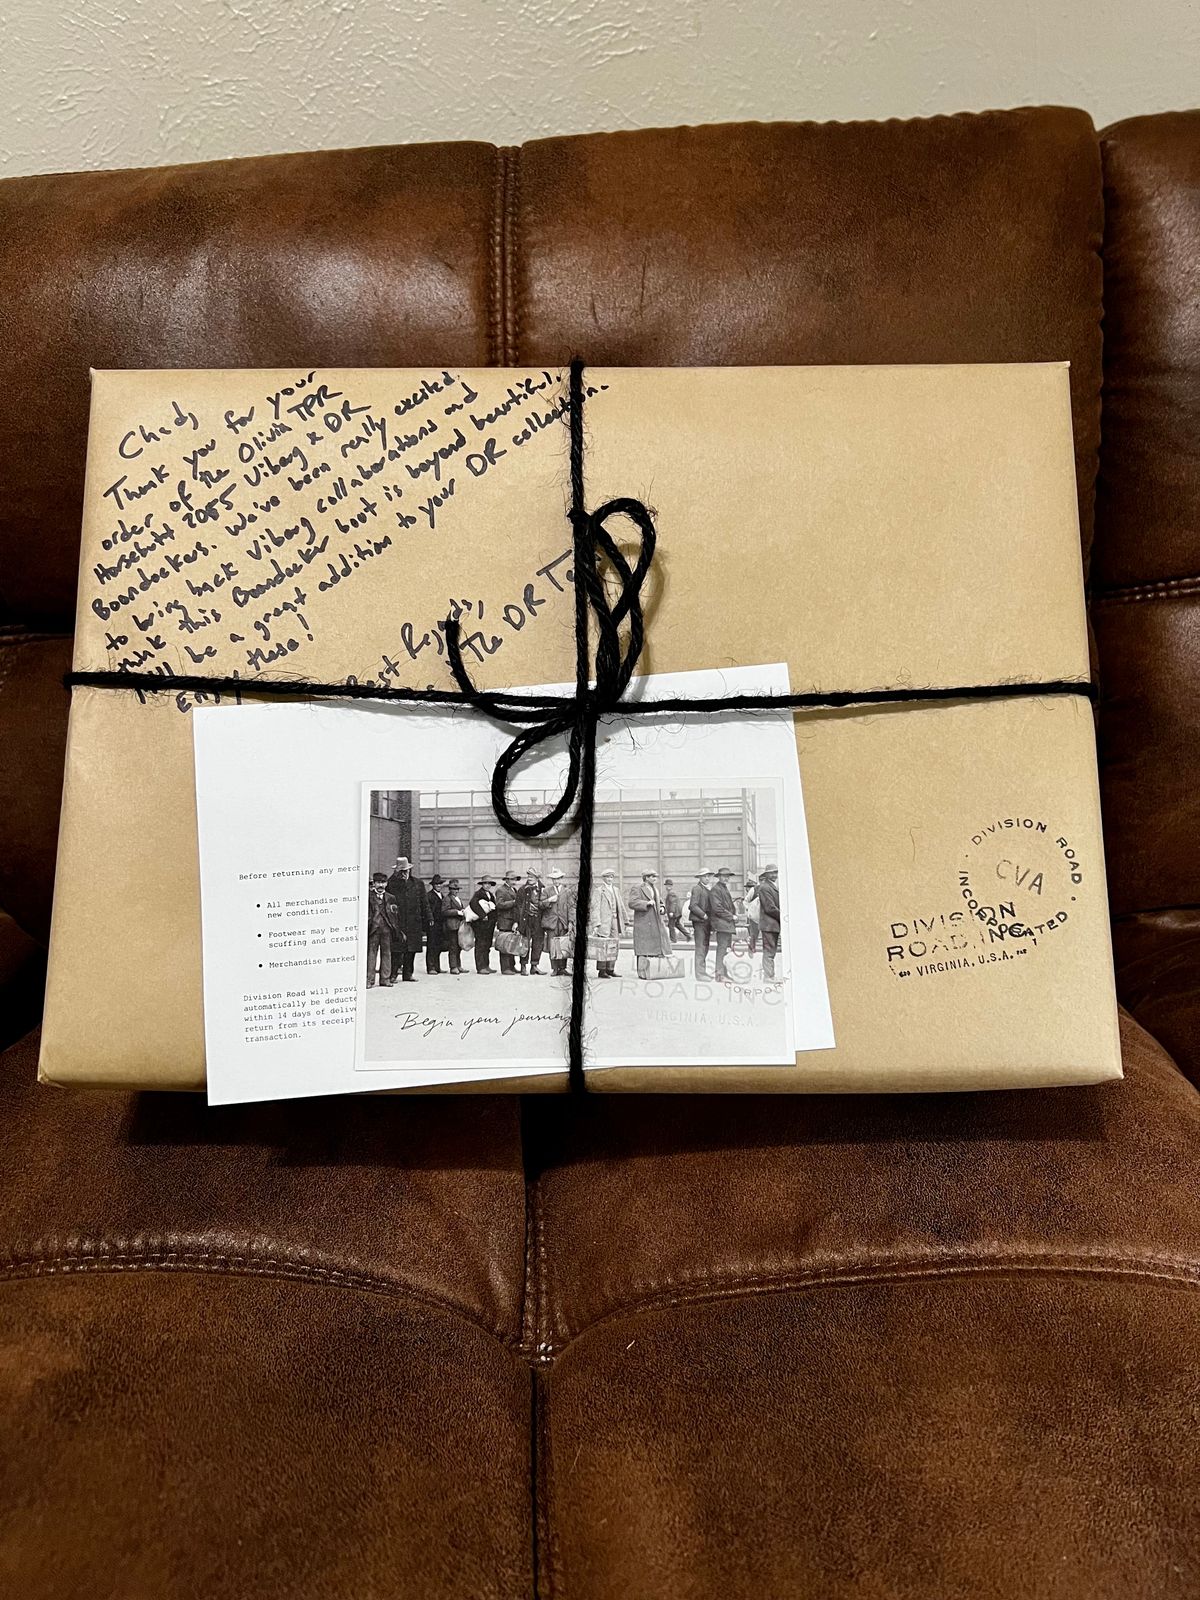 Chad,
Thank you for your
order of the Olivia TPR
Horsebutt 2055 Viberg x DR
Boondockers. We've been really excited
to bring back Viberg collaborations and
think this Boondocker boot is beyond beautiful.
be a great addition to your DR collection.
Enjoy these!
Best Regards,
The DR
Before returning any merch
• All merchandise mus
new condition.
• Footwear may be ret
scuffing and creasi
• Merchandise marked
Division Road will provi
automatically be deducte
within 14 days of delive
return from its receipt
transaction.
Begin your journey
ROAD INC.
VIRGINIA U.S.A.
DIVISION ROAD
INCORPORATED
CVA
DIVISION
ROAD, INC.
VIRGINIA, U.S.A.